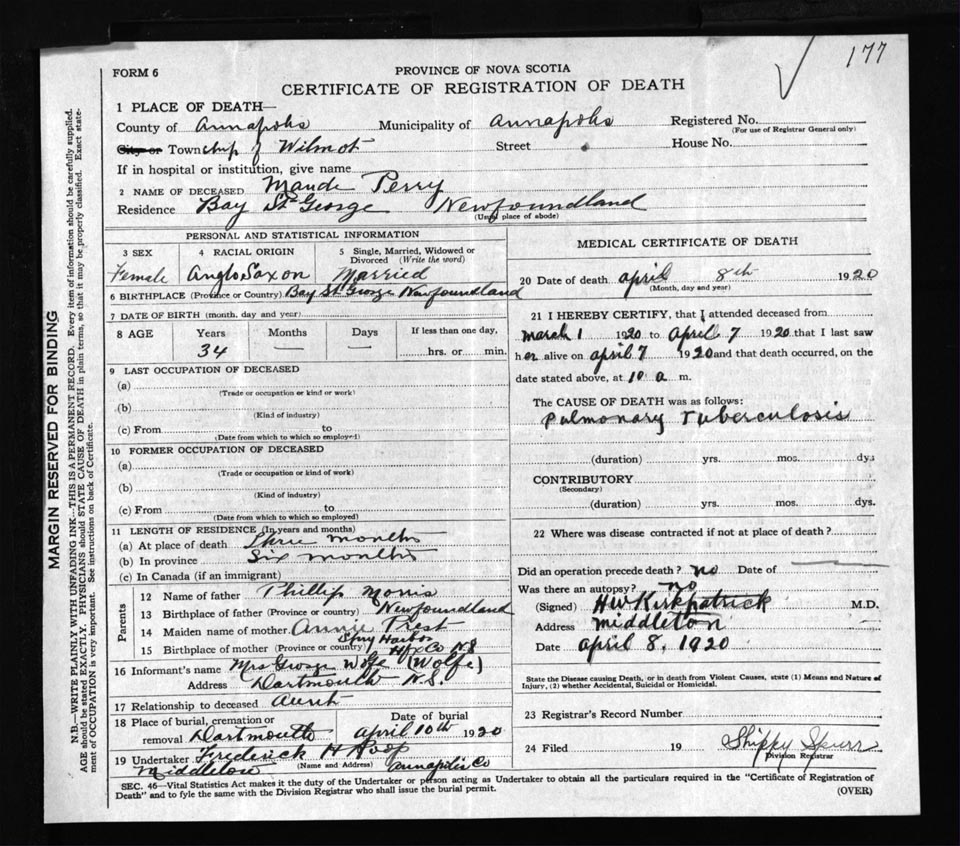 177
FORM 6
PROVINCE OF NOVA SCOTIA
CERTIFICATE OF REGISTRATION OF DEATH
1 PLACE OF DEATH—
County of Annapolis Municipality of Annapolis Registered No.
(For use of Registrar General only)
City or Township of Wilmot Street House No.
If in hospital or institution, give name
2 NAME OF DECEASED Maude Perry
Residence Bay St George Newfoundland
(Usual place of abode)
PERSONAL AND STATISTICAL INFORMATION
3 SEX 4 RACIAL ORIGIN 5 Single, Married, Widowed or Divorced (Write the word)
Female Anglo Saxon Married
6 BIRTHPLACE (Province or Country) Bay St George Newfoundland
7 DATE OF BIRTH (month, day and year)
8 AGE Years Months Days If less than one day,
34 — — hrs. or min.
9 LAST OCCUPATION OF DECEASED
(a)
(Trade or occupation or kind or work)
(b)
(Kind of industry)
(c) From to
(Date from which to which so employed)
10 FORMER OCCUPATION OF DECEASED
(a)
(Trade or occupation or kind of work)
(b)
(Kind of industry)
(c) From to
(Date from which to which so employed)
11 LENGTH OF RESIDENCE (In years and months)
(a) At place of death Three months
(b) In province Six months
(c) In Canada (if an immigrant)
Parents
12 Name of father Phillip Morris
13 Birthplace of father (Province or country) Newfoundland
14 Maiden name of mother Annie Prest
15 Birthplace of mother (Province or country) Spry Harbor Hfx Co N.S
16 Informant's name Mrs George Wolfe (Wolfe)
Address Dartmouth N.S.
17 Relationship to deceased Aunt
18 Place of burial, cremation or removal Dartmouth Date of burial April 10th 1920
19 Undertaker Frederick H Roop
(Name and Address)
Middleton Annapolis Co
MEDICAL CERTIFICATE OF DEATH
20 Date of death April 8th 1920
(Month, day and year)
21 I HEREBY CERTIFY, that I attended deceased from
March 1 1920 to April 7 1920 that I last saw
her alive on April 7 1920 and that death occurred, on the
date stated above, at 10 a m.
The CAUSE OF DEATH was as follows:
Pulmonary Tuberculosis
(duration) yrs. mos. dys
CONTRIBUTORY
(Secondary)
(duration) yrs. mos. dys.
22 Where was disease contracted if not at place of death?
Did an operation precede death? no Date of
Was there an autopsy? no
(Signed) HW Kirkpatrick M.D.
Address Middleton
Date April 8, 1920
State the Disease causing Death, or in death from Violent Causes, state (1) Means and Nature of
Injury, (2) whether Accidental, Suicidal or Homicidal.
23 Registrar's Record Number
24 Filed 19 Shippy Spurr
Division Registrar
SEC. 46—Vital Statistics Act makes it the duty of the Undertaker or person acting as Undertaker to obtain all the particulars required in the "Certificate of Registration of
Death" and to fyle the same with the Division Registrar who shall issue the burial permit.
(OVER)
MARGIN RESERVED FOR BINDING
N.B.—WRITE PLAINLY WITH UNFADING INK—THIS IS A PERMANENT RECORD. Every item of information should be carefully supplied.
AGE should be stated EXACTLY. PHYSICIANS should STATE CAUSE OF DEATH in plain terms, so that it may be properly classified. Exact state-
ment of OCCUPATION is very important. See instructions on back of Certificate.